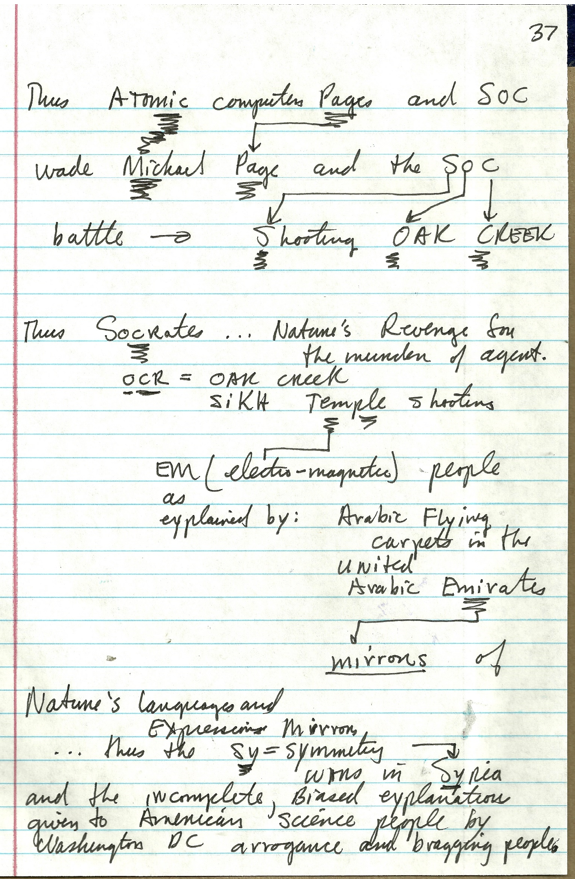 37
Thus Atomic computers Pages and SOC
wade Michael Page and the SOC
battle → Shooting OAK CREEK
Thus Socrates ... Nature's Revenge for
the murder of agent.
OCR = OAK creek
SiKH Temple shooting
EM (electro-magnetic) people
as
explained by: Arabic Flying
carpets in the
united
Arabic Emirates
mirrors of
Nature's languages and
Expressions Mirrors
... thus the Sy = symmetry
wars in Syria
and the incomplete, Biased explanation
given to American Science people by
Washington DC arrogance and bragging people